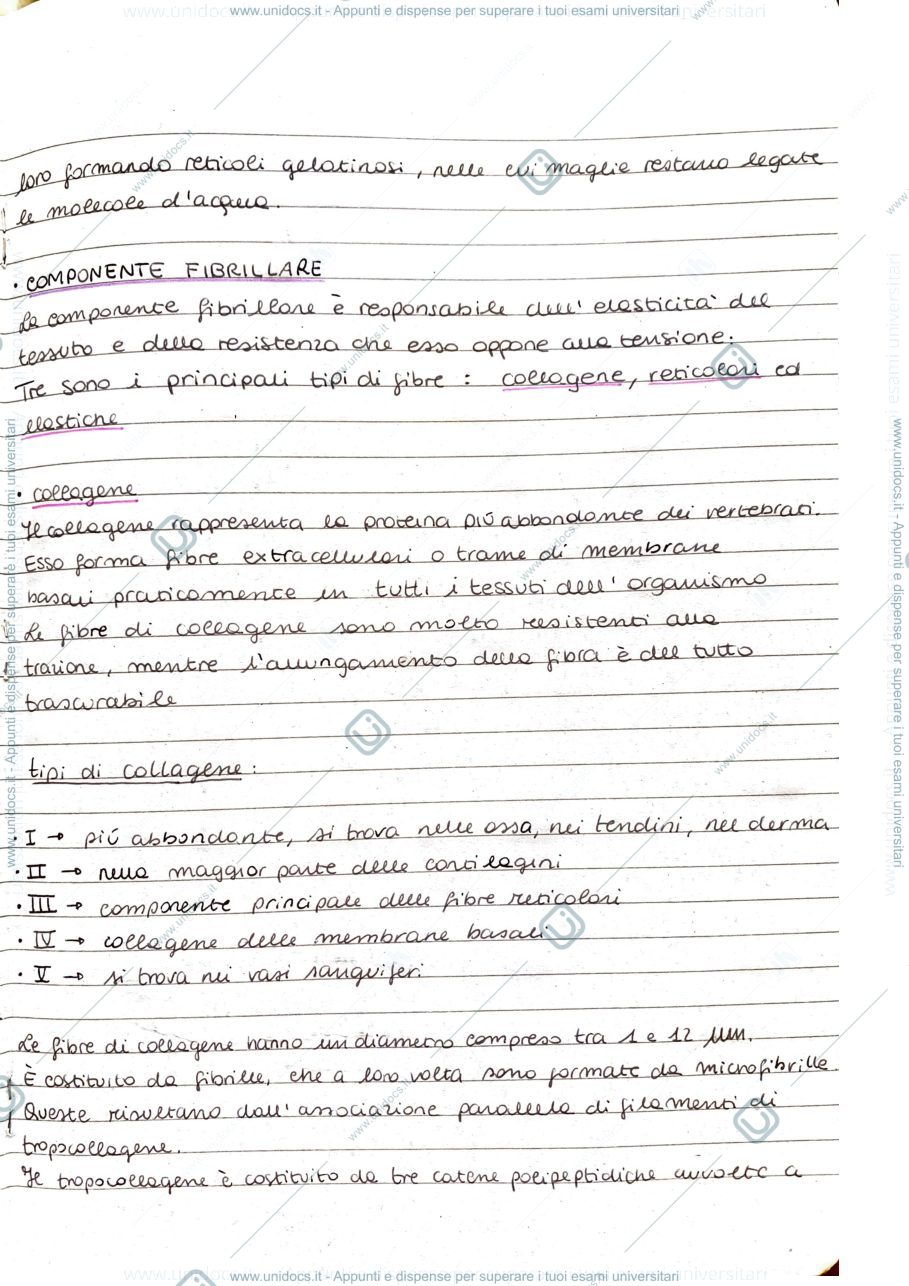 www.unidocs.it - Appunti e dispense per superare i tuoi esami universitari
loro formando reticoli gelatinosi, nelle cui maglie restano legate
le molecole d'acqua.
• COMPONENTE FIBRILLARE
La componente fibrillare è responsabile dell'elasticità del
tessuto e della resistenza che esso oppone alla tensione.
Tre sono i principali tipi di fibre : collagene, reticolari ed
elastiche
• collagene
Il collagene rappresenta la proteina più abbondante dei vertebrati.
Esso forma fibre extracellulari o trame di membrane
basali praticamente in tutti i tessuti dell'organismo
Le fibre di collagene sono molto resistenti alla
trazione, mentre l'allungamento della fibra è del tutto
trascurabile
tipi di collagene :
• I → più abbondante, si trova nelle ossa, nei tendini, nel derma
• II → nella maggior parte delle cartilagini
• III → componente principale delle fibre reticolari
• IV → collagene delle membrane basali
• V → si trova nei vasi sanguiferi
Le fibre di collagene hanno un diametro compreso tra 1 e 12 µm.
È costituito da fibrille, che a loro volta sono formate da microfibrille.
Queste risultano dall'associazione parallela di filamenti di
tropocollagene.
Il tropocollagene è costituito da tre catene polipeptidiche avvolte a
www.unidocs.it - Appunti e dispense per superare i tuoi esami universitari
www.unidocs.it - Appunti e dispense per superare i tuoi esami universitari
www.unidocs.it - Appunti e dispense per superare i tuoi esami universitari